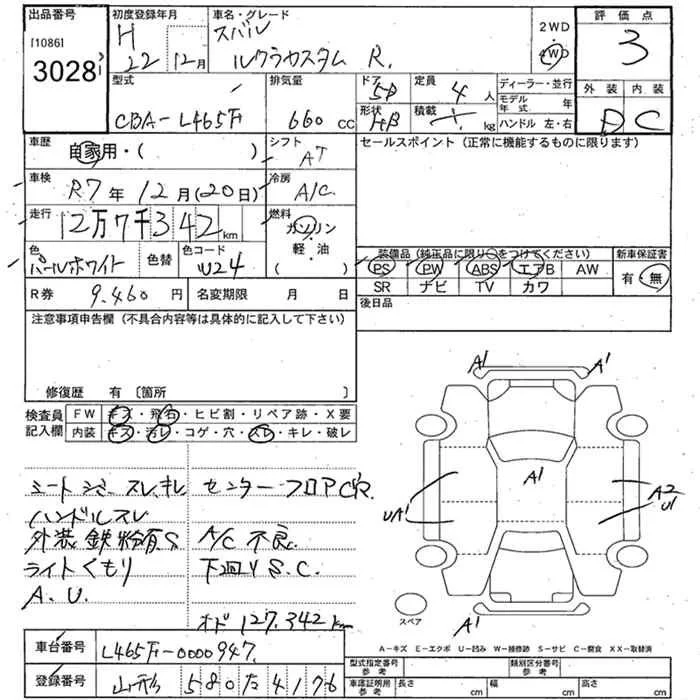 出品番号
[1086]
3028
初度登録年月
H
22 12月
車名・グレード
スバル
ルクラカスタム R.
2WD
・
4WD
評価点
3
外装 内装
D C
型式
CBA-L465F
排気量
660 cc
ドア
5D
形状
HB
定員
4 人
積載
kg
ディーラー・並行
モデル年式 年
ハンドル 左・右
車歴
自家用・( )
シフト
AT
車検
R7年 12月(20日)
冷房
A/C
走行
12万7千342km
燃料
ガソリン
軽・油
( )
色
パールホワイト
色替
色コード
W24
R券 9.460円
名変期限 月 日
セールスポイント(正常に機能するものに限ります)
装備品(純正品に限り○をつけてください)
新車保証書
PS PW ABS エアB AW
SR ナビ TV カワ
有・無
後日品
注意事項申告欄(不具合内容等は具体的に記入して下さい)
修復歴 有〔箇所 〕
検査員記入欄
FW キズ・飛石・ヒビ割・リペア跡・X要
内装 キズ・汚レ・コゲ・穴・スレ・キレ・破レ
シートシミースレ.キレ
ハンドルスレ
外装鉄粉有.S
ライトくもり
A.U.
センターフロアC穴
A/C不良
下回りS.C.
オド127.342km
A1
A1
A1
UA1
A2
U1
A1
スペア
A-キズ E-エクボ U-凹み W-補修跡 S-サビ C-腐食 XX-取替済
車台番号
L465F-0000947
登録番号
山形 580た4176
型式指定番号
参考
類別区分番号
参考
車庫証明用
参考
長さ cm
幅 cm
高さ cm